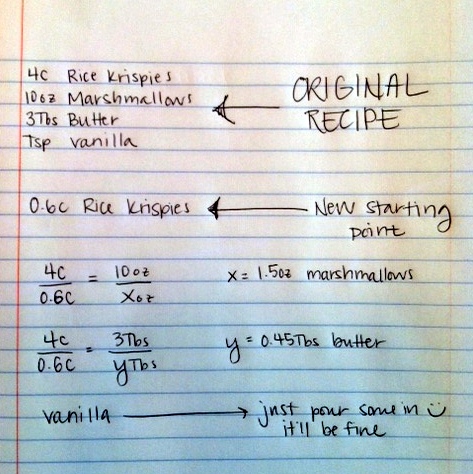 4c Rice Krispies
10oz Marshmallows
3Tbs Butter
Tsp vanilla
ORIGINAL
RECIPE
0.6c Rice Krispies
New starting
point
4c/0.6c = 10oz/Xoz
x = 1.5oz marshmallows
4c/0.6c = 3Tbs/yTbs
y = 0.45Tbs butter
vanilla
just pour some in
it'll be fine